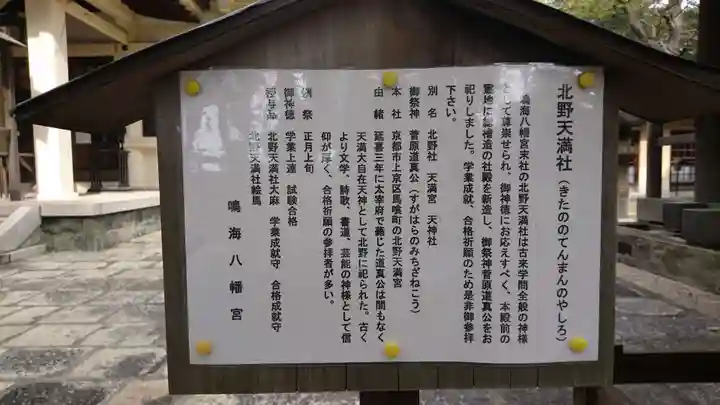 北野天満社(きたののてんまんのやしろ)
鳴海八幡宮末社の北野天満社は古来学問全般の神様
として尊崇せられ、御神徳にお応えすべく、本殿前の
聖地に総檜造の社殿を新造し、御祭神菅原道真公をお
祀りしました。学業成就、合格祈願のため是非御参拝
下さい。
別名 北野社 天満宮 天神社
御祭神 菅原道真公(すがはらのみちざねこう)
本社 京都市上京区馬喰町の北野天満宮
由緒 延喜三年に太宰府で薨じた道真公は間もなく
天満大自在天神として北野に祀られた。古く
より文学、詩歌、書道、芸能の神様として信
仰が厚く、合格祈願の参拝者が多い。
例祭 正月上旬
御神徳 学業上達 試験合格
授与品 北野天満社大麻 学業成就守 合格成就守
北野天満社絵馬
鳴海八幡宮